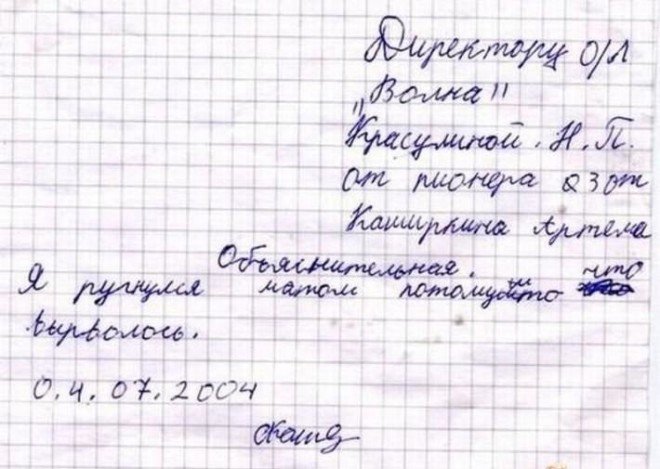 Директору О/Л
"Волна"
Красулиной. Н. П.
от пионера 23 от
Каширкина Артема
Объяснительная.
Я ругнулся матом потому что
вырволось.
0.4.07.2004